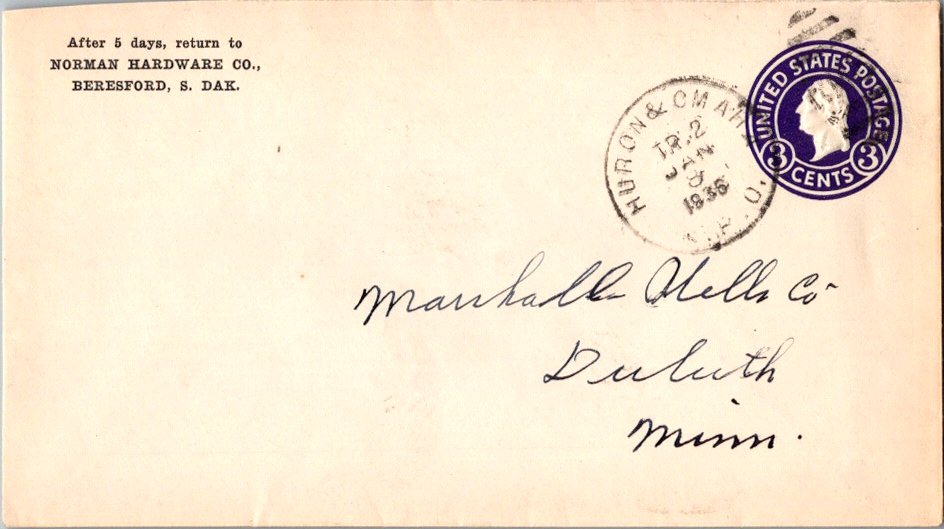 After 5 days, return to
NORMAN HARDWARE CO.,
BERESFORD, S. DAK.
HURON & OMAHA
TR. 2
JAN
1936
R.P.O.
UNITED STATES POSTAGE
3 CENTS 3
Marshall Wells Co
Duluth
Minn.